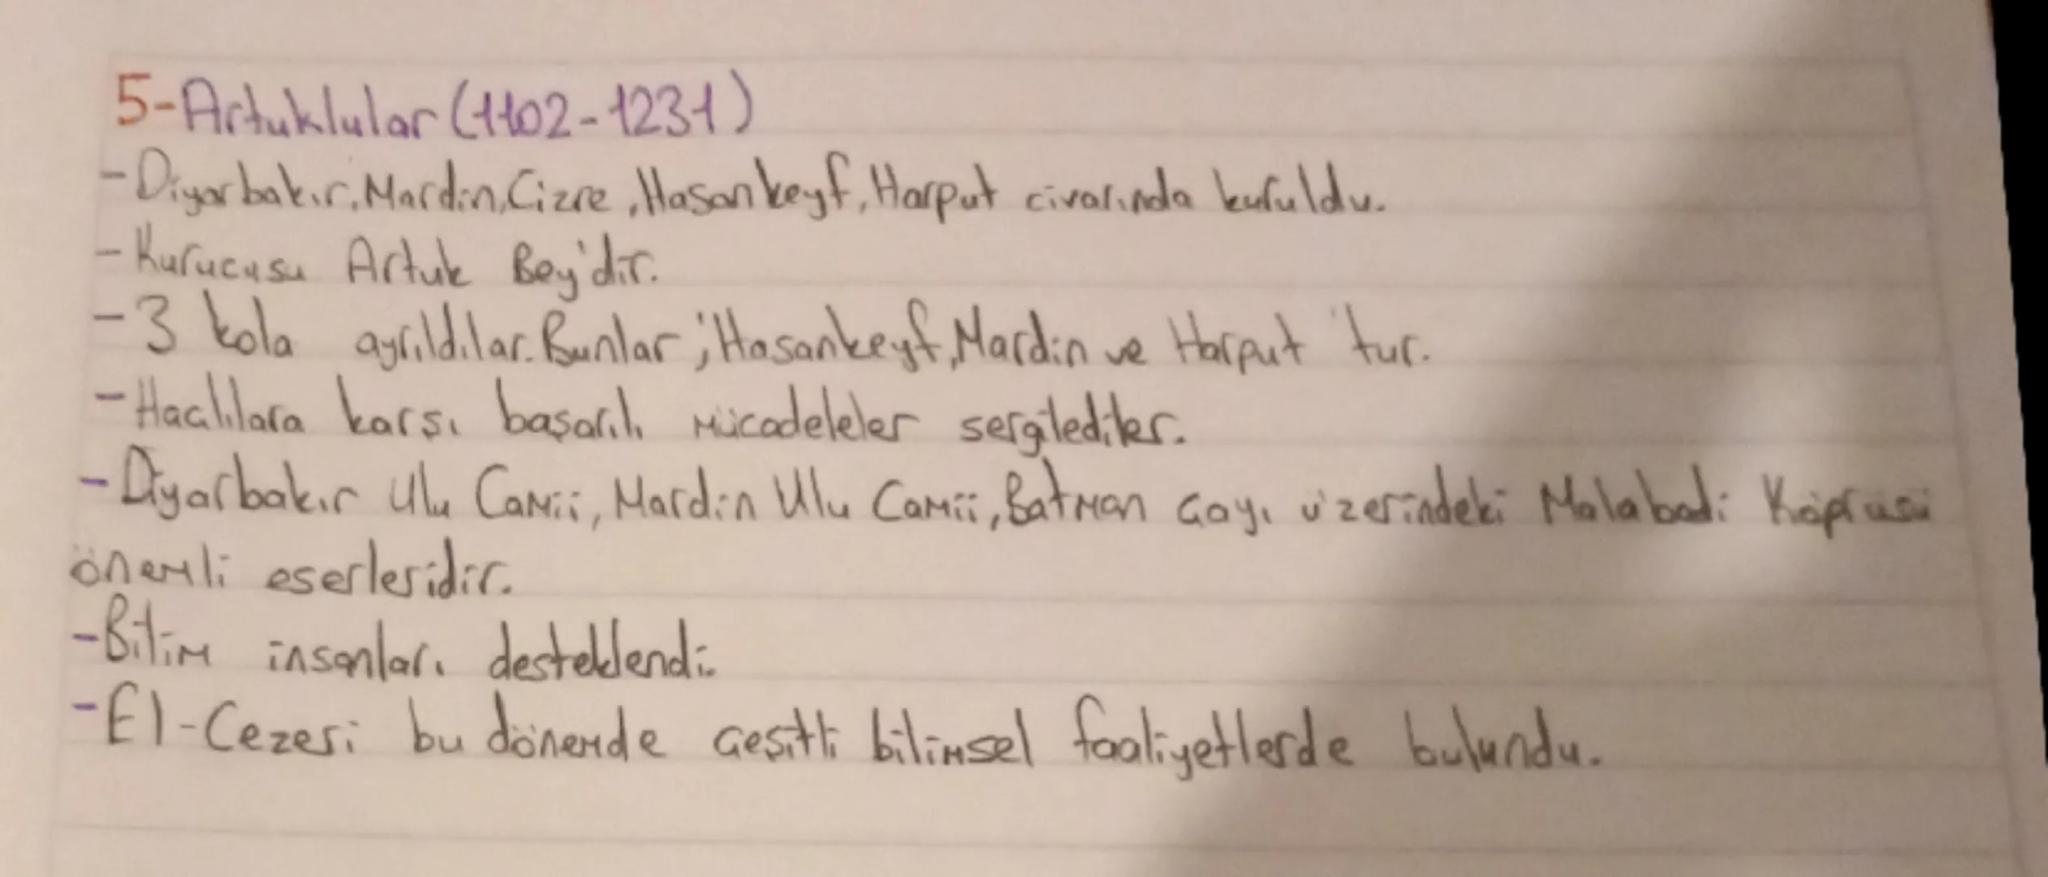 5-Artuklular (1102-1231)
-Diyarbakır, Mardin, Cizre, Hasankeyf, Harput civarında kuruldu.
-Kurucusu Artuk Bey'dir.
-3 kola ayrıldılar. Bunlar ; Hasankeyf, Mardin ve Harput 'tur.
-Haçlılara karşı başarılı mücadeleler sergilediler.
-Diyarbakır Ulu Camii, Mardin Ulu Camii, Batman Çayı üzerindeki Malabadi Köprüsü
önemli eserleridir.
-Bilim insanları desteklendi.
-El-Cezeri bu dönemde çeşitli bilimsel faaliyetlerde bulundu.